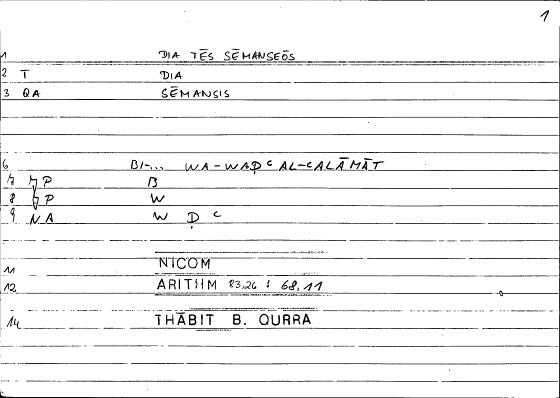 1
1 DIA TĒS SĒMANSEŌS
2 T DIA
3 QA SĒMANSIS
6 BI-... WA-WAḌʿ AL-ʿALĀMĀT
7 P B
8 P W
9 NA W Ḍ ʿ
11 NICOM
12 ARITHM 83,26 : 68,11
14 THĀBIT B. QURRA